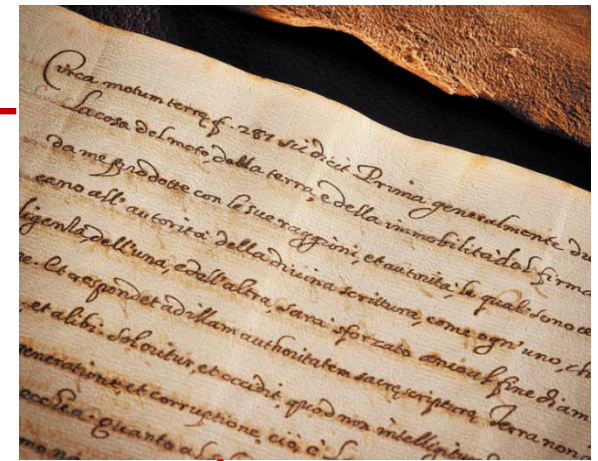 Circa motum terrę f. 287 sic dicit. Prima generalmente
La cosa del moto della terra, e della immobilità del firma
da me prodotte con le sue raggioni, et autorità, le quali sono ce
cano all'autorità della divina scrittura, come ogn'uno, ch
ligenza dell'una, e dell'altra, sara sforzato
Et respondet ad illam authoritatem sacrę scripturę, Terra non
et alibi. Sol oritur, et occidit, quod non intelligitur
eneratione, et corruptione, cio è
quanto al